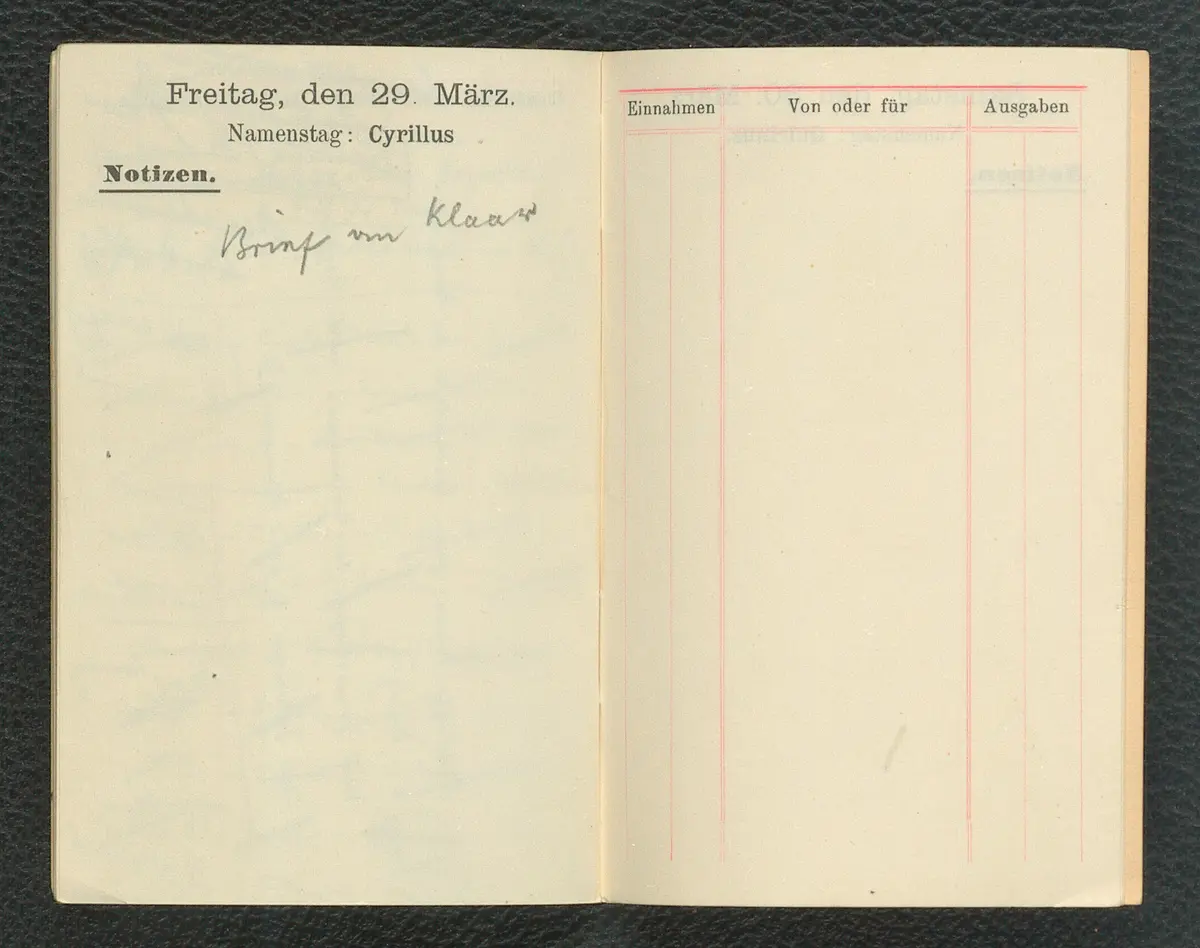 Freitag, den 29. März.
Namenstag: Cyrillus
Notizen.
Brief von Klaar
Einnahmen Von oder für Ausgaben